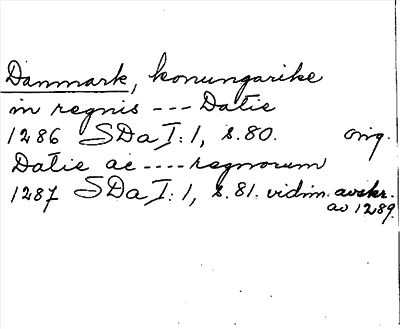 Danmark, konungarike
in regnis --- Datie
1286 SDa I: 1, s. 80. orig.
Datie ac ---- regnorum
1287 SDa I: 1, s. 81. vidim. avskr.
av 1289.